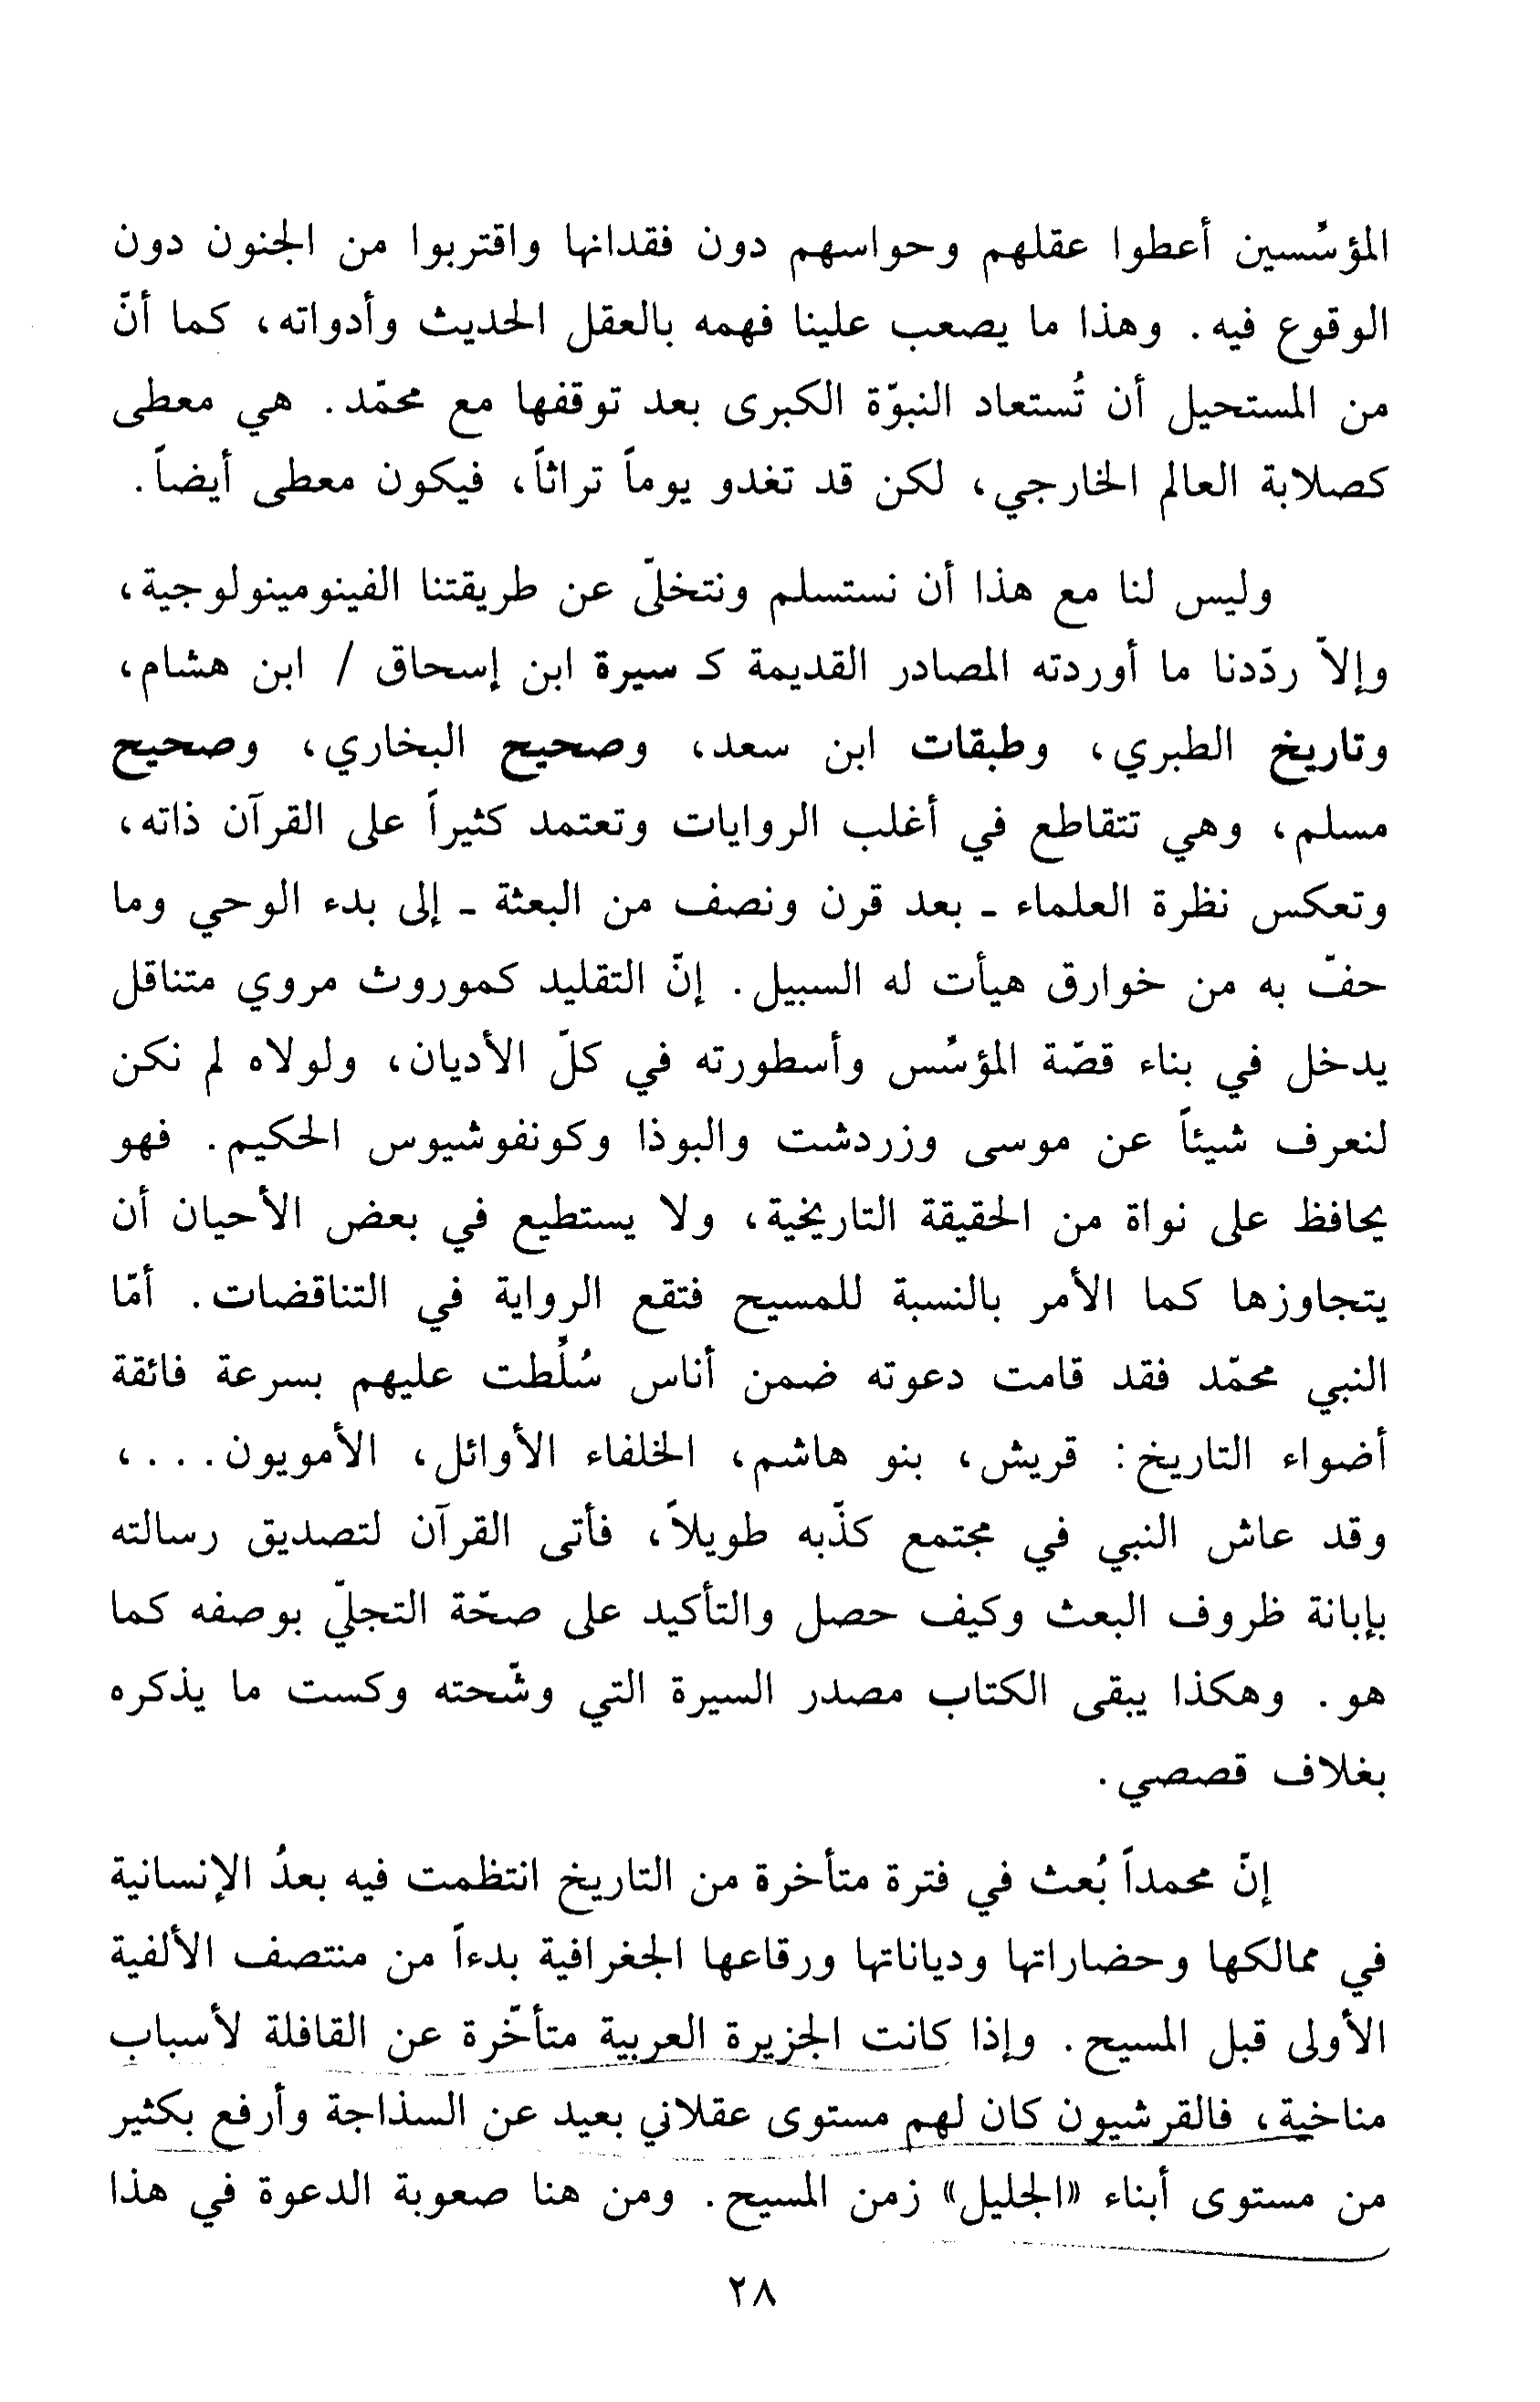 المؤسِّسين أعطوا عقلهم وحواسهم دون فقدانها واقتربوا من الجنون دون
الوقوع فيه. وهذا ما يصعب علينا فهمه بالعقل الحديث وأدواته، كما أنّ
من المستحيل أن تُستعاد النبوّة الكبرى بعد توقفها مع محمّد. هي معطى
كصلابة العالم الخارجي، لكن قد تغدو يوماً تراثاً، فيكون معطى أيضاً.
وليس لنا مع هذا أن نستسلم ونتخلّى عن طريقتنا الفينومينولوجية،
وإلاّ ردّدنا ما أوردته المصادر القديمة كـ سيرة ابن إسحاق / ابن هشام،
وتاريخ الطبري، وطبقات ابن سعد، وصحيح البخاري، وصحيح
مسلم، وهي تتقاطع في أغلب الروايات وتعتمد كثيراً على القرآن ذاته،
وتعكس نظرة العلماء ـ بعد قرن ونصف من البعثة ـ إلى بدء الوحي وما
حفّ به من خوارق هيأت له السبيل. إنّ التقليد كموروث مروي متناقل
يدخل في بناء قصّة المؤسِّس وأسطورته في كلّ الأديان، ولولاه لم نكن
لنعرف شيئاً عن موسى وزردشت والبوذا وكونفوشيوس الحكيم. فهو
يحافظ على نواة من الحقيقة التاريخية، ولا يستطيع في بعض الأحيان أن
يتجاوزها كما الأمر بالنسبة للمسيح فتقع الرواية في التناقضات. أمّا
النبي محمّد فقد قامت دعوته ضمن أناس سُلِّطت عليهم بسرعة فائقة
أضواء التاريخ: قريش، بنو هاشم، الخلفاء الأوائل، الأمويون...،
وقد عاش النبي في مجتمع كذّبه طويلاً، فأتى القرآن لتصديق رسالته
بإبانة ظروف البعث وكيف حصل والتأكيد على صحّة التجلّي بوصفه كما
هو. وهكذا يبقى الكتاب مصدر السيرة التي وشّحته وكست ما يذكره
بغلاف قصصي.
إنّ محمداً بُعث في فترة متأخرة من التاريخ انتظمت فيه بعدُ الإنسانية
في ممالكها وحضاراتها ودياناتها ورقاعها الجغرافية بدءاً من منتصف الألفية
الأولى قبل المسيح. وإذا كانت الجزيرة العربية متأخّرة عن القافلة لأسباب
مناخية، فالقرشيون كان لهم مستوى عقلاني بعيد عن السذاجة وأرفع بكثير
من مستوى أبناء «الجليل» زمن المسيح. ومن هنا صعوبة الدعوة في هذا
٢٨